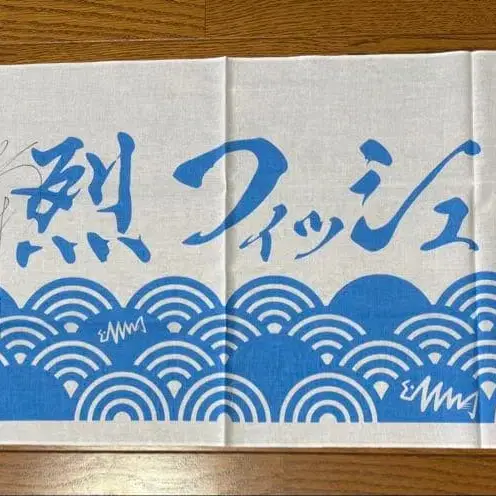 烈フィッシュ